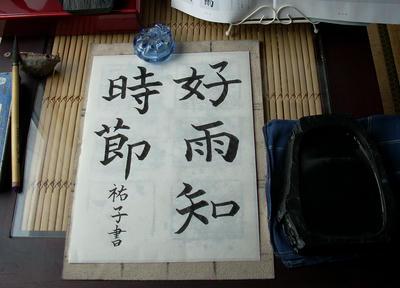 好雨知
時節
祐子書
雨